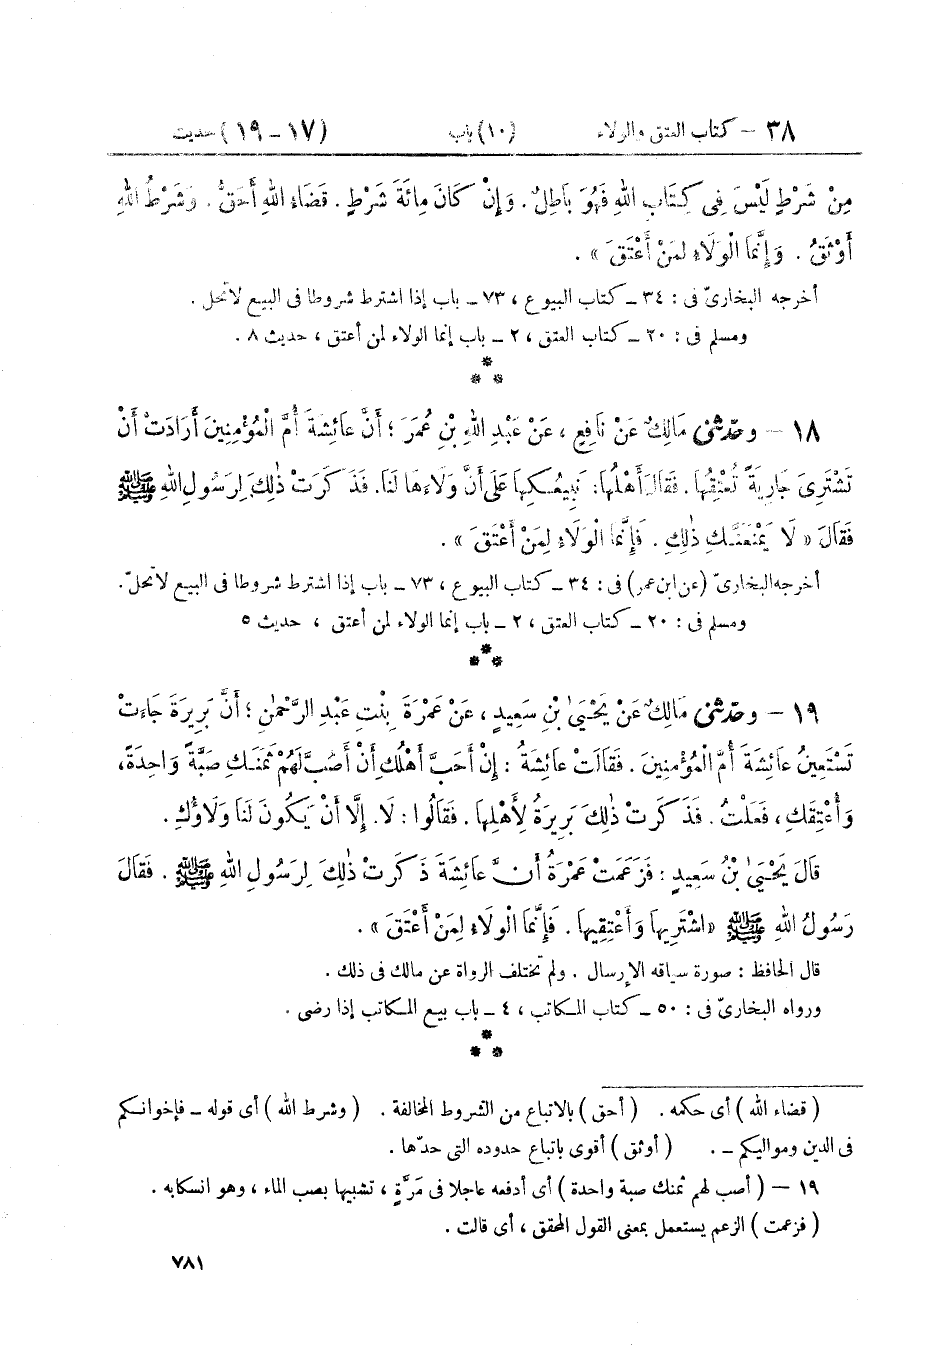 ٣٨ – كتاب العتق والولاء (١٠) باب (١٧ – ١٩) حديث
مِنْ شَرْطٍ لَيْسَ فِي كِتَابِ اللهِ فَهُوَ بَاطِلٌ . وَإِنْ كَانَ مِائَةَ شَرْطٍ . قَضَاءُ اللهِ أَحَقُّ . وَشَرْطُ اللهِ
أَوْثَقُ . وَإِنَّمَا الْوَلَاءُ لِمَنْ أَعْتَقَ » .
أخرجه البخارىّ فى : ٣٤ ــ كتاب البيوع ، ٧٣ ــ باب إذا اشترط شروطا فى البيع لا تحل .
ومسلم فى : ٢٠ ــ كتاب العتق ، ٢ ــ باب إنما الولاء لمن أعتق ، حديث ٨ .
*
* *
١٨ – وحدّثنى مَالِكٌ عَنْ نَافِعٍ ، عَنْ عَبْدِ اللهِ بْنِ عُمَرَ ؛ أَنَّ عَائِشَةَ أُمَّ الْمُؤْمِنِينَ أَرَادَتْ أَنْ
تَشْتَرِىَ جَارِيَةً تُعْتِقُهَا . فَقَالَ أَهْلُهَا : نَبِيعُكِهَا عَلَى أَنَّ وَلَاءَهَا لَنَا . فَذَكَرَتْ ذٰلِكَ لِرَسُولِ اللهِ ﷺ
فَقَالَ « لَا يَمْنَعَنَّكِ ذٰلِكِ . فَإِنَّمَا الْوَلَاءُ لِمَنْ أَعْتَقَ » .
أخرجه البخارىّ (عن ابن عمر) فى : ٣٤ ــ كتاب البيوع ، ٧٣ ــ باب إذا اشترط شروطا فى البيع لا تحلّ .
ومسلم فى : ٢٠ ــ كتاب العتق ، ٢ ــ باب إنما الولاء لمن أعتق ، حديث ٥
*
* *
١٩ – وحدّثنى مَالِكٌ عَنْ يَحْيَىٰ بْنِ سَعِيدٍ ، عَنْ عَمْرَةَ بِنْتِ عَبْدِ الرَّحْمٰنِ ؛ أَنَّ بَرِيرَةَ جَاءَتْ
تَسْتَعِينُ عَائِشَةَ أُمَّ الْمُؤْمِنِينَ . فَقَالَتْ عَائِشَةُ : إِنْ أَحَبَّ أَهْلُكِ أَنْ أَصُبَّ لَهُمْ ثَمَنَكِ صَبَّةً وَاحِدَةً ،
وَأُعْتِقَكِ ، فَعَلْتُ . فَذَكَرَتْ ذٰلِكَ بَرِيرَةُ لِأَهْلِهَا . فَقَالُوا : لَا . إِلَّا أَنْ يَكُونَ لَنَا وَلَاؤُكِ .
قَالَ يَحْيَىٰ بْنُ سَعِيدٍ : فَزَعَمَتْ عَمْرَةُ أَنَّ عَائِشَةَ ذَكَرَتْ ذٰلِكَ لِرَسُولِ اللهِ ﷺ . فَقَالَ
رَسُولُ اللهِ ﷺ « اشْتَرِيهَا وَأَعْتِقِيهَا . فَإِنَّمَا الْوَلَاءُ لِمَنْ أَعْتَقَ » .
قال الحافظ : صورة سياقه الإرسال . ولم تختلف الرواة عن مالك فى ذلك .
ورواه البخارىّ فى : ٥٠ ــ كتاب المكاتب ، ٤ ــ باب بيع المكاتب إذا رضى .
*
* *
( قضاء الله ) أى حكمه . ( أحق ) بالاتباع من الشروط المخالفة . ( وشرط الله ) أى قوله ــ فإخوانكم
فى الدين ومواليكم ــ . ( أوثق ) أقوى باتباع حدوده التى حدّها .
١٩ – ( أصب لهم ثمنك صبة واحدة ) أى أدفعه عاجلا فى مَرَّةٍ ، تشبيها بصب الماء ، وهو انسكابه .
( فزعمت ) الزعم يستعمل بمعنى القول المحقق ، أى قالت .
٧٨١